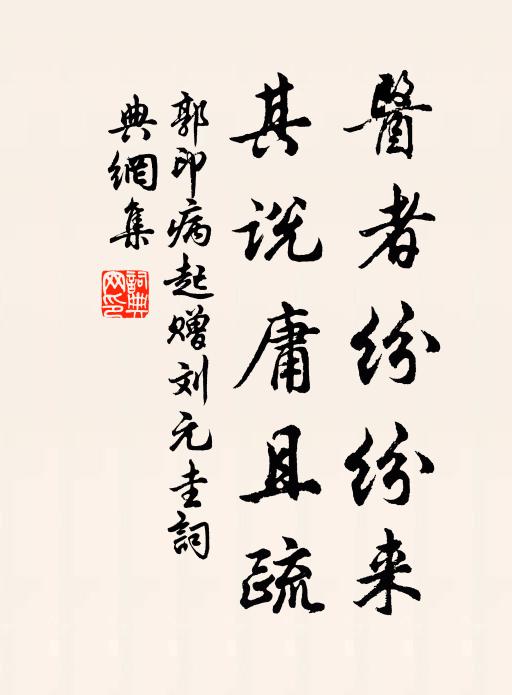 醫者紛紛来
其説庸且疏
郭印病起赠刘元圭詞
典網集
詞典网印